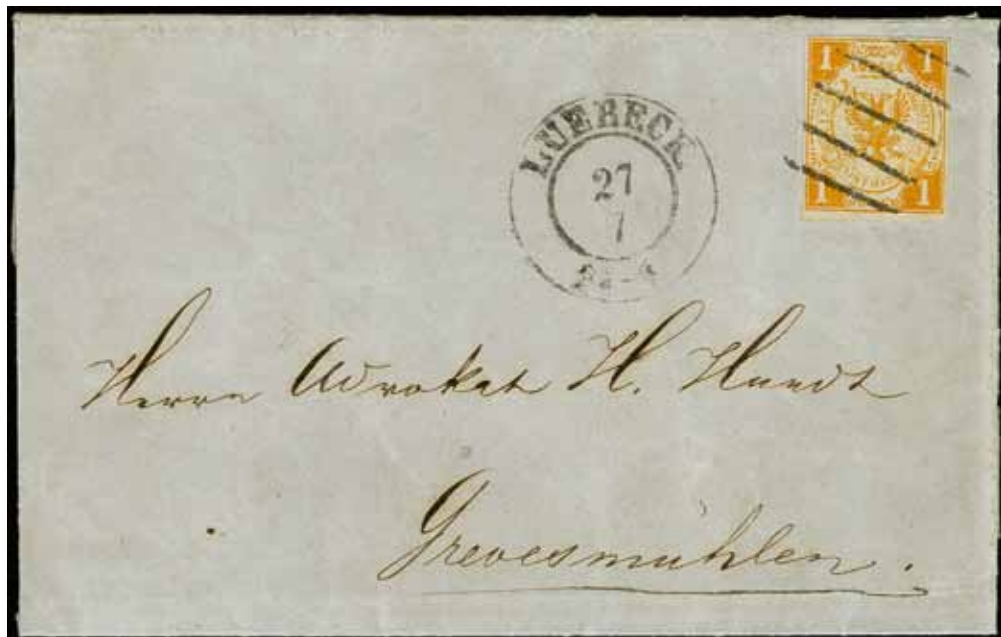 1 1
LUEBECK
27
7
1 1
Herrn Advokat H. Hundt
Grevesmühlen.